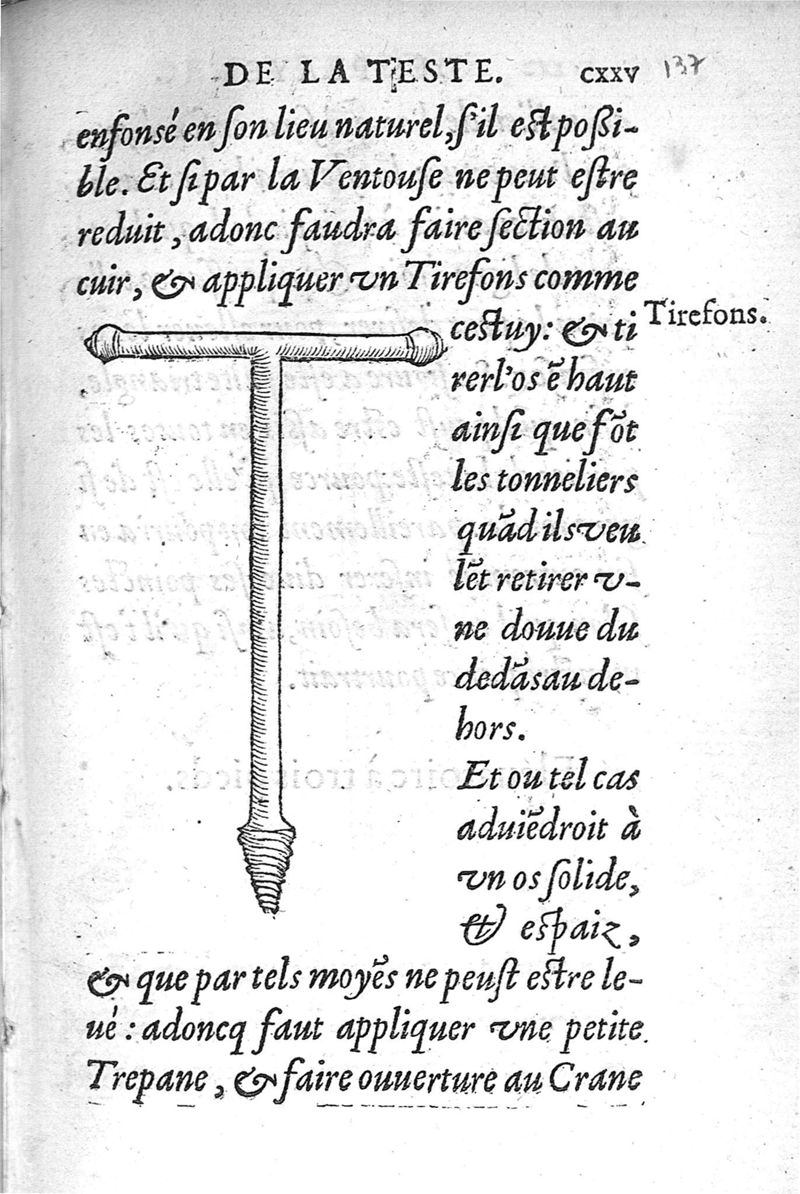 DE LA TESTE. CXXV 137
enfonsé en ſon lieu naturel, ſ'il eſt poſsi-
ble. Et ſi par la Ventouſe ne peut eſtre
reduit, adonc faudra faire ſection au
cuir, & appliquer vn Tirefons comme
ceſtuy: & ti
Tirefons.
rer l'os ẽ haut
ainſi que fõt
les tonneliers
quãd ils veu
lẽt retirer v-
ne douue du
dedãs au de-
hors.
Et ou tel cas
aduiẽdroit à
vn os ſolide,
& eſpaiz,
& que par tels moyẽs ne peuſt eſtre le-
ué: adoncq faut appliquer vne petite
Trepane, & faire ouuerture au Crane